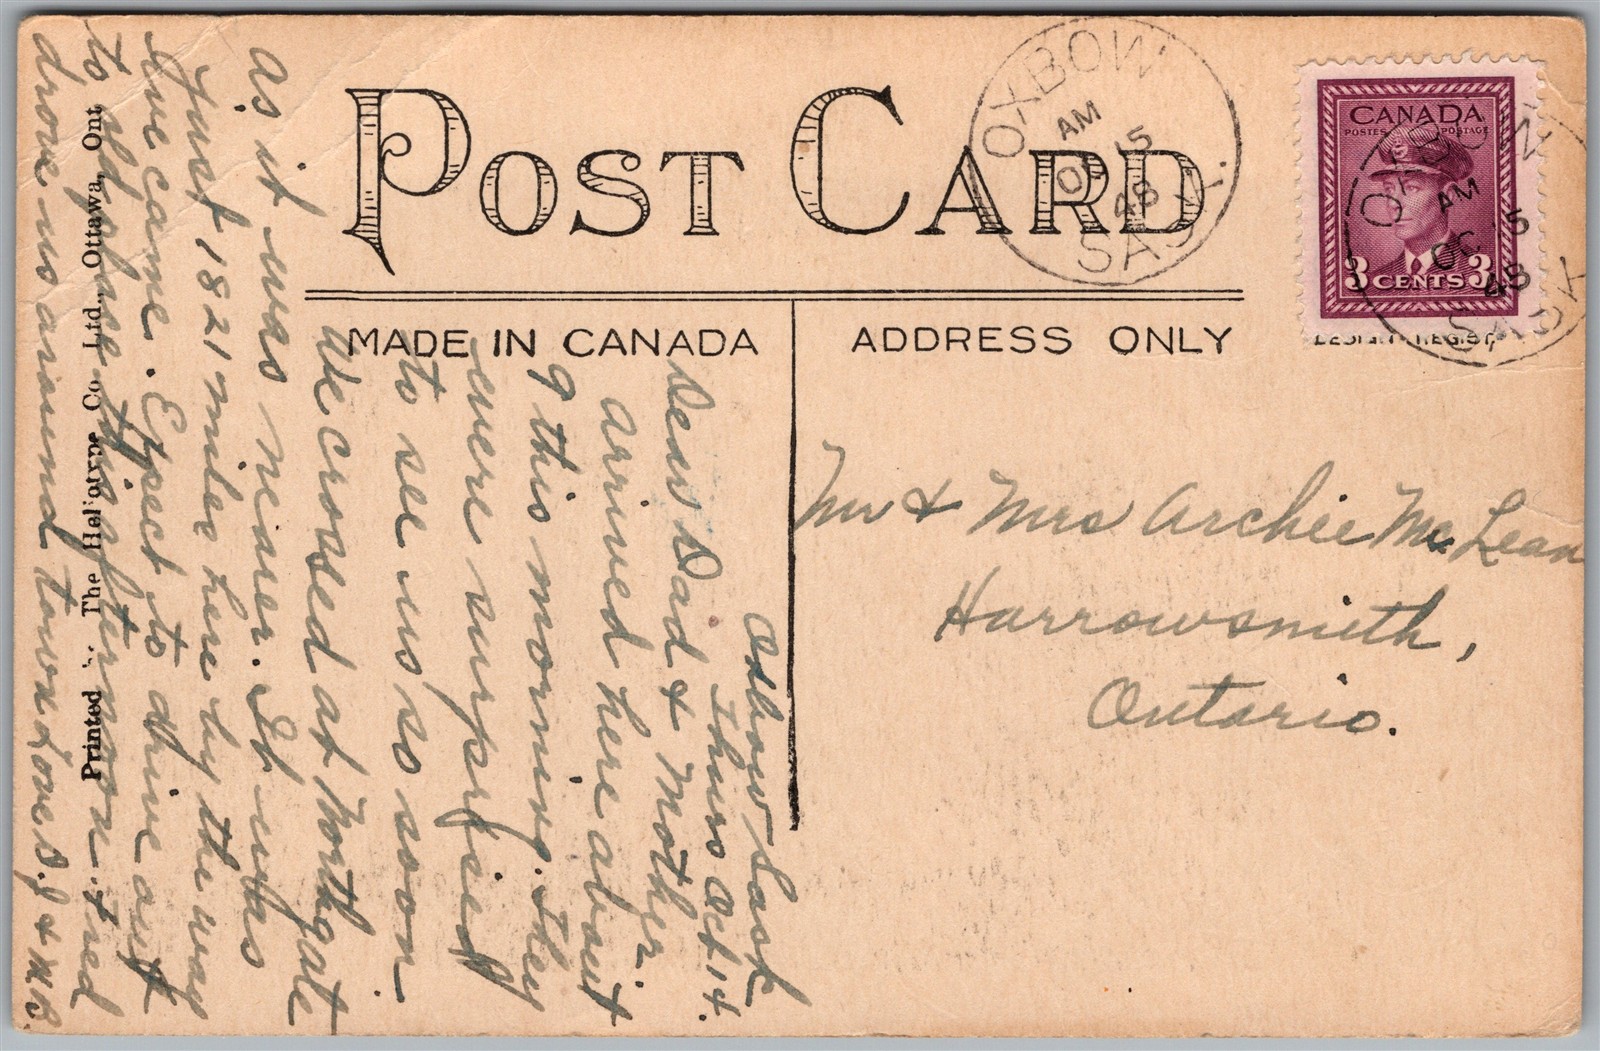 POST CARD
MADE IN CANADA
ADDRESS ONLY
OXBOW
AM
OC 15
48
SASK.
CANADA
POSTES POSTAGE
3 CENTS 3
OXBOW
AM
OC 15
48
SASK
Oxbow Sask
Thurs Oct 14.
Dear Dad & Mother.
Arrived here about
9 this morning. They
were surprised
to see us so soon
We crossed at Northgate
as it was nearer. It was
just 1821 miles here by the way
we came. Expect to drive out
to old place this afternoon. Fred
drove us around town Love D. J & M.B.
Mr & Mrs Archie McLean
Harrowsmith,
Ontario.
Printed The Heliotype Co. Ltd., Ottawa, Ont